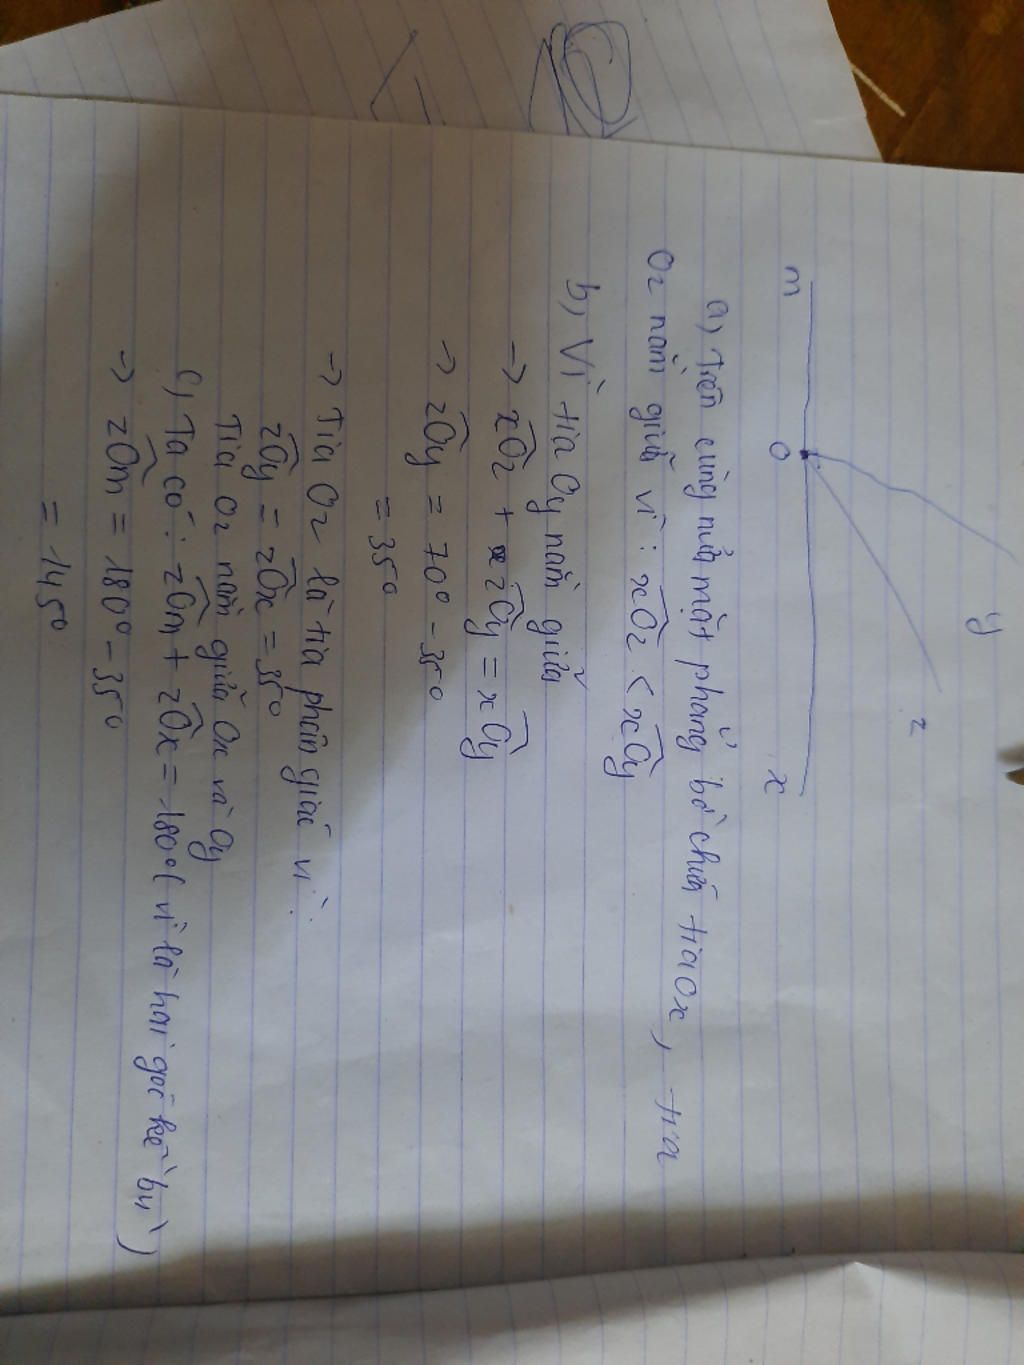 y
z
m
O
x
a) Trên cùng nửa mặt phẳng bờ chứa tia Ox, tia
Oz nằm giữa vì: xOz < xOy
b) Vì tia Oy nằm giữa
→ xOz + zOy = xOy
→ zOy = 70° - 35°
= 35°
→ Tia Oz là tia phân giác vì:
zOy = zOx = 35°
Tia Oz nằm giữa Ox và Oy
c) Ta có: zOm + zOx = 180° ( vì là hai góc kề bù )
→ zOm = 180° - 35°
= 145°